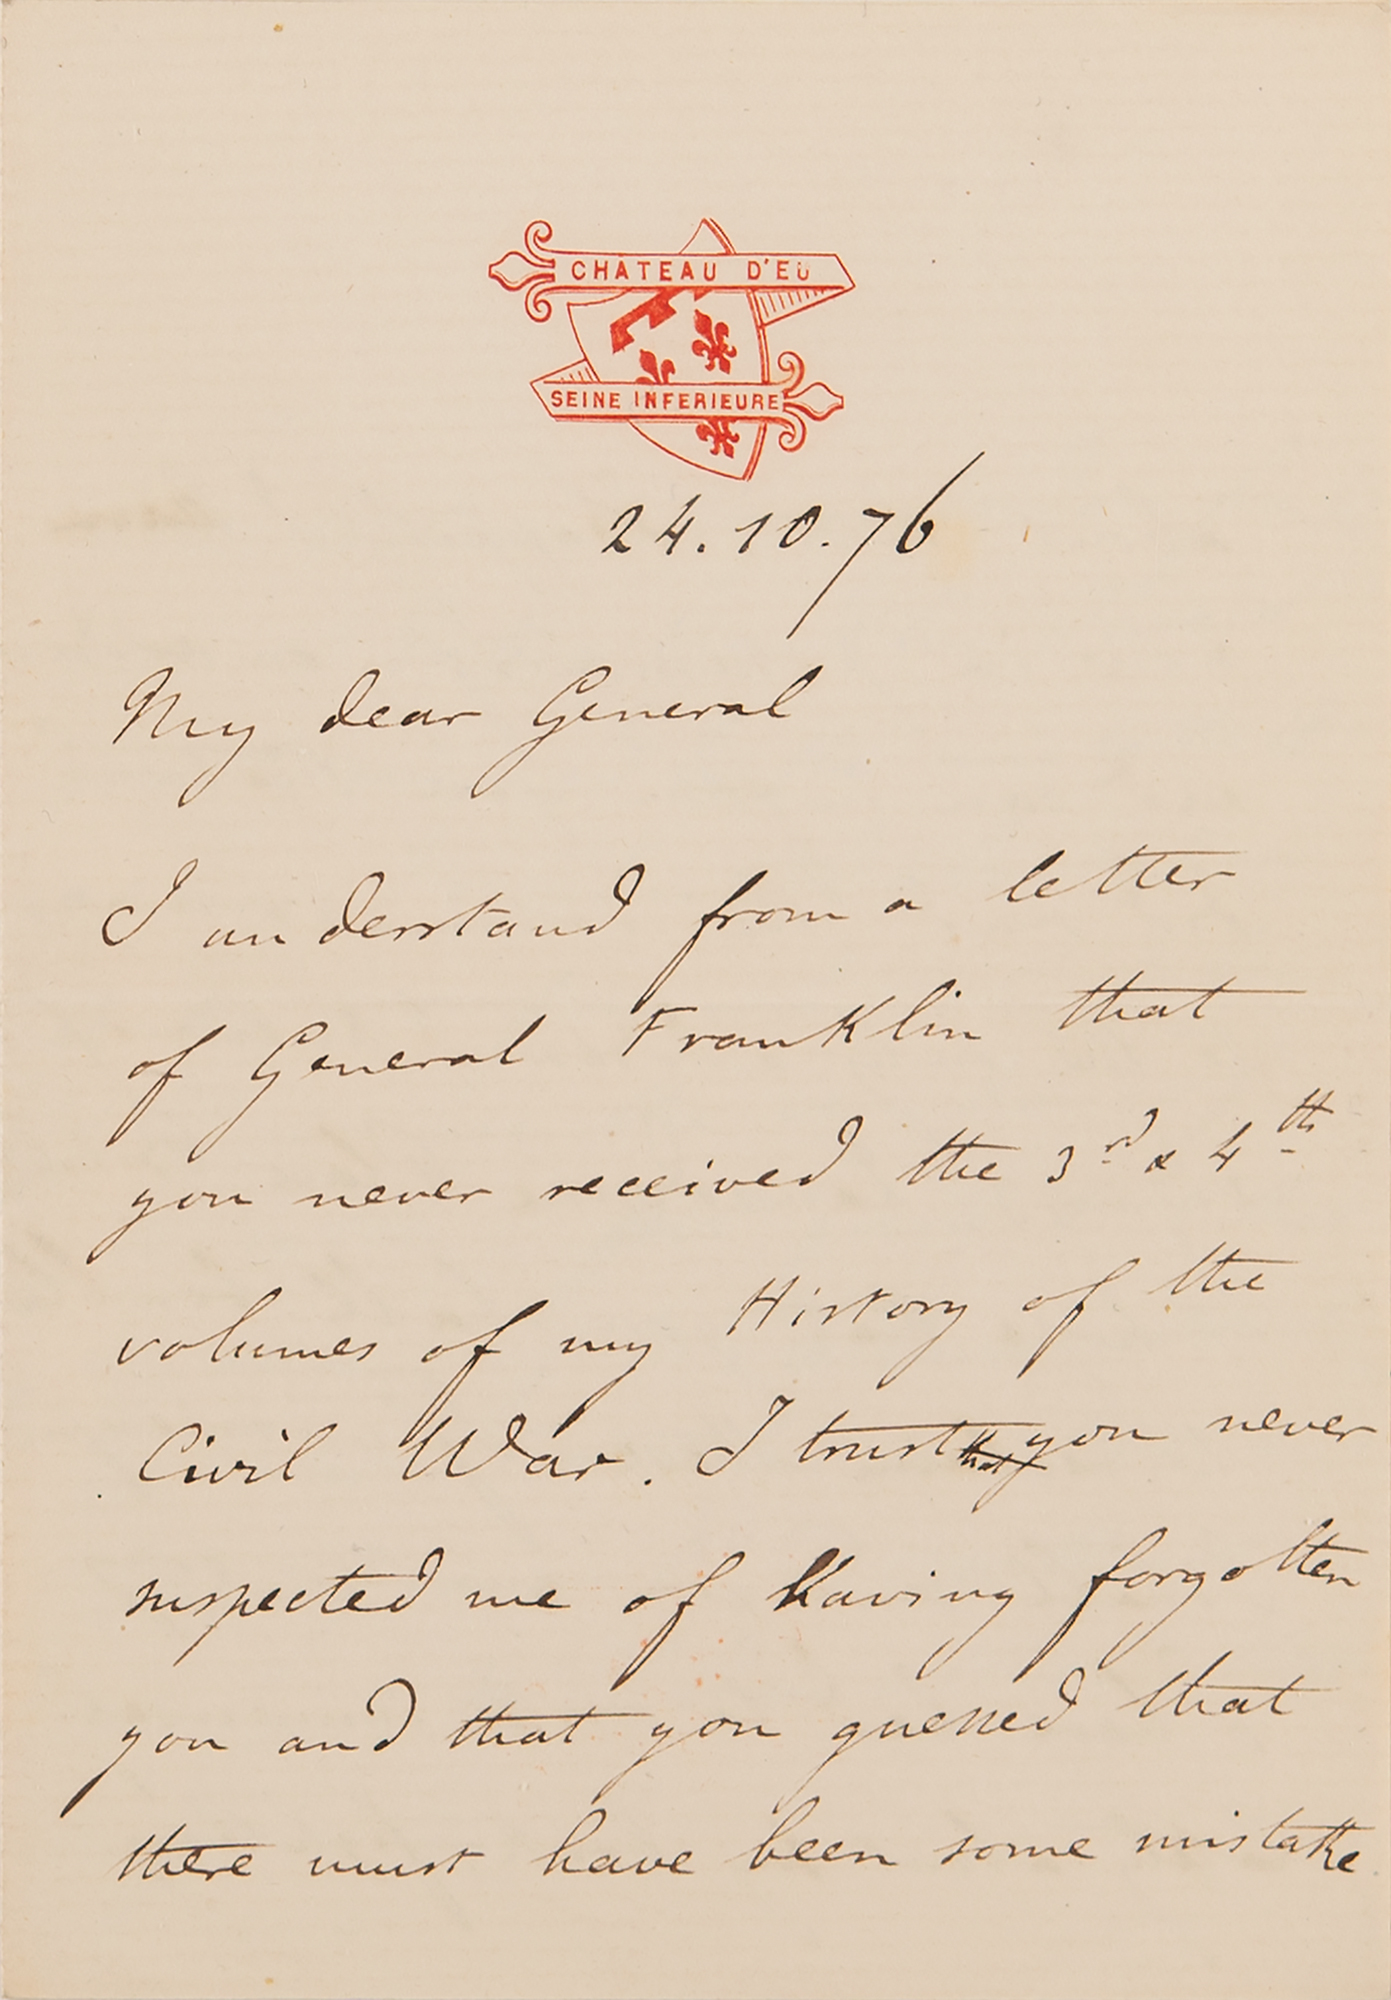 CHATEAU D'EU
SEINE INFERIEURE
24.10.76
My dear General
I understand from a letter
of General Franklin that
you never received the 3rd & 4th
volumes of my History of the
Civil War. I trust that you never
suspected me of having forgotten
you and that you guessed that
there must have been some mistake